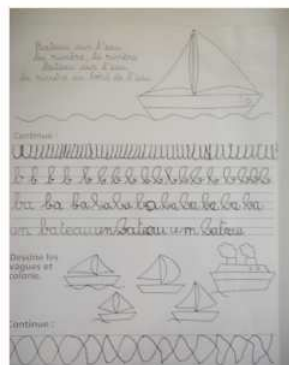 Bateau sur l'eau
La rivière, la rivière
Bateau sur l'eau,
La rivière au bord de l'eau
Continue :
b b b b b b b b b b b b b b b b b
ba ba ba ba ba ba ba ba ba ba
un bateau un bateau un bateau
Dessine les
vagues et
colorie.
Continue :